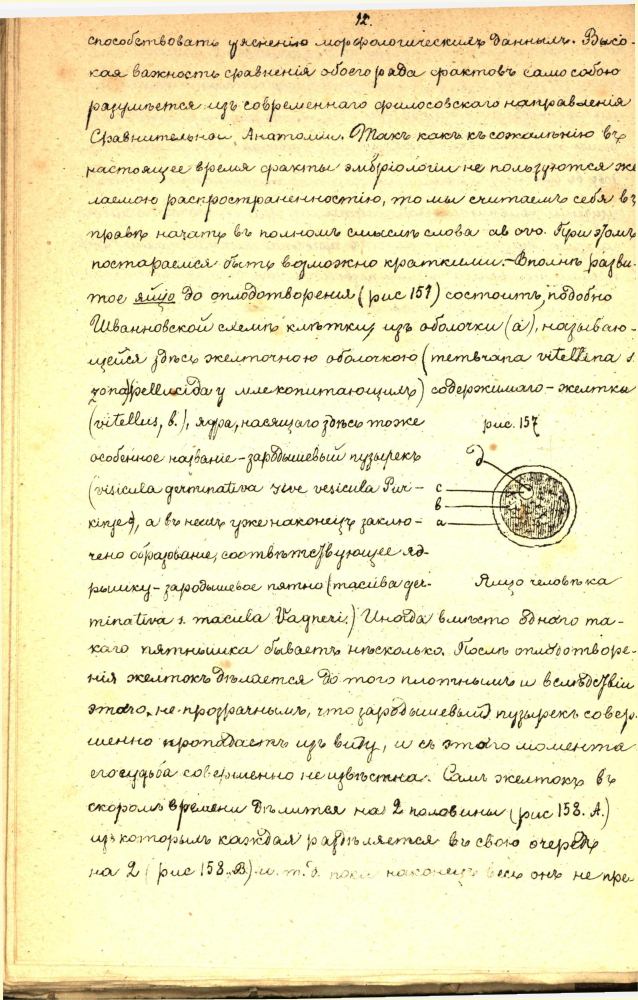 12.
способствовать уясненію морфологическихъ данныхъ. Высо-
кая важность сравненія обоего рода фактовъ само собою
разумѣется изъ современнаго философскаго направленія
Сравнительной Анатоміи. Такъ какъ къ сожалѣнію въ
настоящее время факты эмбріологіи не пользуются же
лаемою распространенностію, то мы считаемъ себя въ
правѣ начать въ полномъ смыслѣ слова ab ovo. При этомъ
постараемся быть возможно краткими. – Вполнѣ разви-
тое яйцо до оплодотворенія (рис 157) состоитъ, подобно
Шванновской схемѣ клѣтки, изъ оболочки (а), называю-
щейся здѣсь желточною оболочкою (membrana vitellina s.
zona pellucida у млекопитающихъ) содержимаго – желтка
(vitellus, в.), ядра, носящаго здѣсь тоже
рис. 157
особенное названіе – зародышевый пузырекъ
(vesicula germinativa sive vesicula Pur-
kinje), а въ немъ уже наконецъ заклю-
чено образованіе, соотвѣтствующее яд-
д
с
в
а
рышку – зародышевое пятно (macula ger-
Яйцо человѣка
minativa s. macula Vagneri.) Иногда вмѣсто одного та-
каго пятнышка бываетъ нѣсколько. Послѣ оплодотворе-
нія желтокъ дѣлается до того плотнымъ и вслѣдствіи
этого, не прозрачнымъ, что зародышевый пузырекъ совер-
шенно пропадаетъ изъ виду, и съ этого момента
его судьба совершенно не извѣстна. Самъ желтокъ въ
скоромъ времени дѣлится на 2 половины (рис 158. А.)
изъ которыхъ каждая раздѣляется въ свою очередь
на 2 (рис 158. В.) и. т. д. пока наконецъ весь онъ не пре-